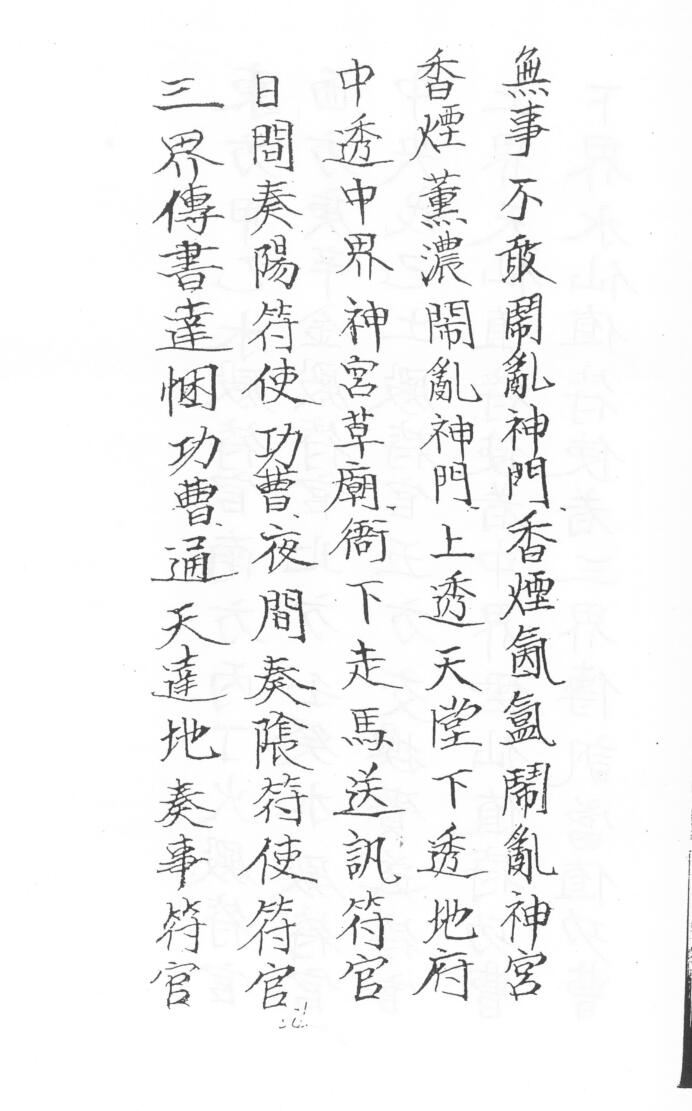 無事不敢鬧亂神門香煙氤氳鬧亂神宮
香煙薰濃鬧亂神門上透天堂下透地府
中透中界神宮草廟衙下走馬送訊符官
日間奏陽符使功曹夜間奏陰符使符官
三界傳書達悃功曹通天達地奏事符官